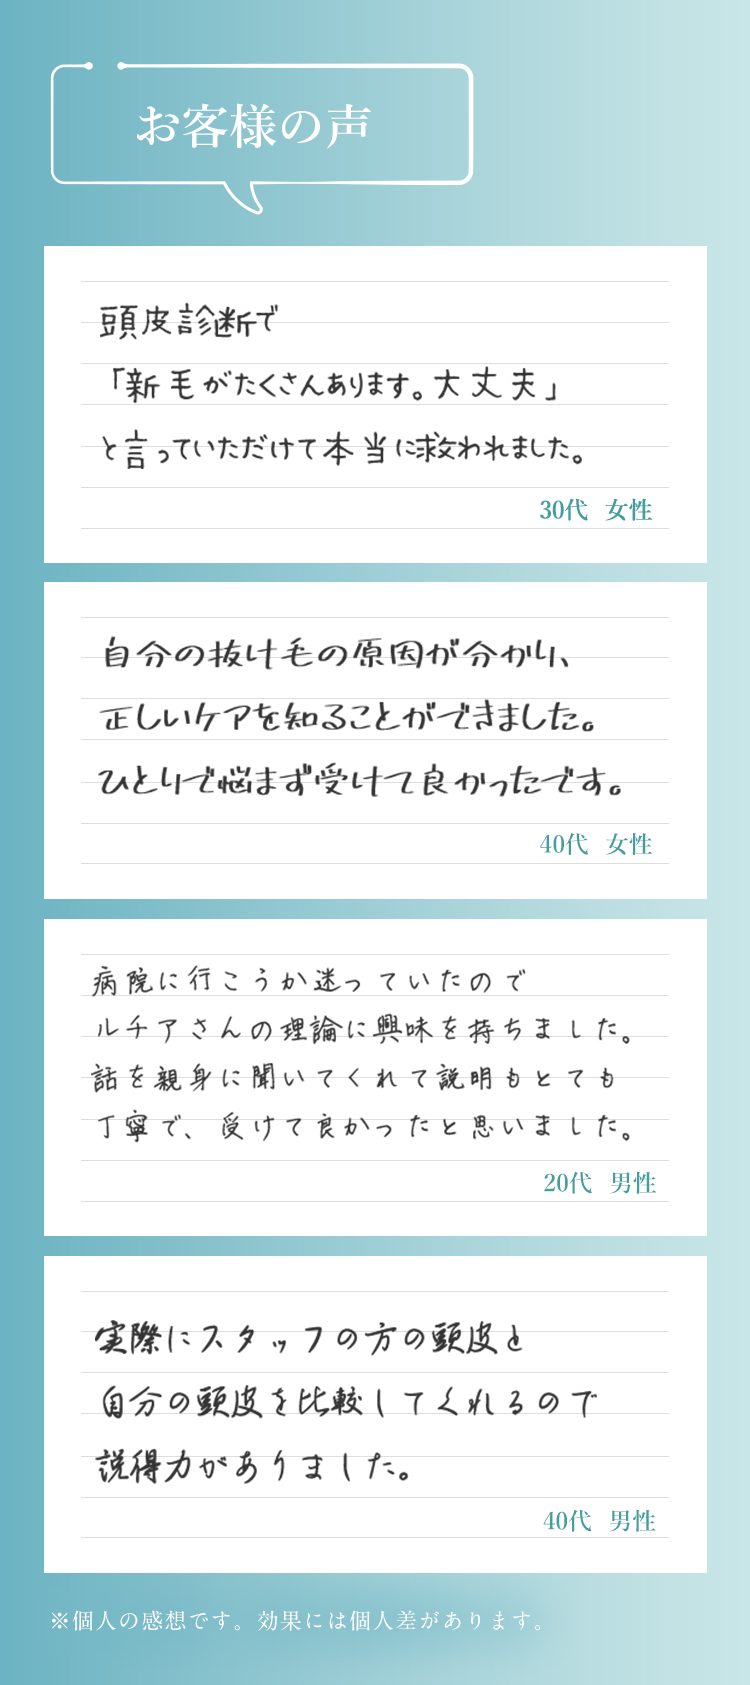 お客様の声
頭皮診断で
「新毛がたくさんあります。大丈夫」
と言っていただけて本当に救われました。
30代 女性
自分の抜け毛の原因が分かり、
正しいケアを知ることができました。
ひとりで悩まず受けて良かったです。
40代 女性
病院に行こうか迷っていたので
ルチアさんの理論に興味を持ちました。
話を親身に聞いてくれて説明もとても
丁寧で、受けて良かったと思いました。
20代 男性
実際にスタッフの方の頭皮と
自分の頭皮を比較してくれるので
説得力がありました。
40代 男性
※個人の感想です。効果には個人差があります。